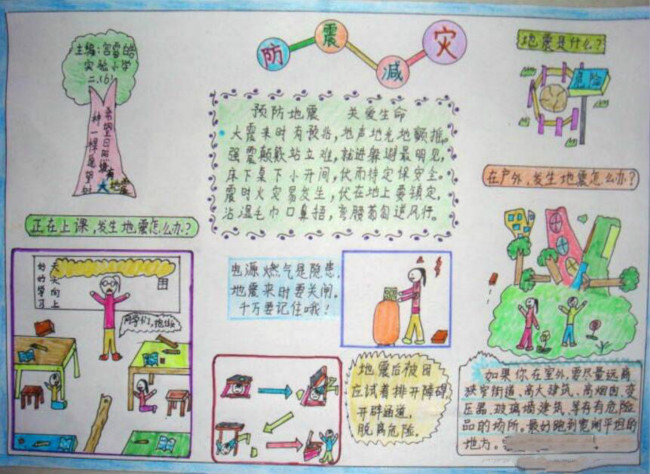 防震减灾
主编:宫睿皓
实验小学
二.(6)
地震是什么?
危险
预防地震 关爱生命
大震来时有预兆,地声地光地颤摇,
强震颠簸站立难,就近躲避最明见,
床下桌下小开间,伏而待定保安全。
震时火灾易发生,伏在地上要镇定,
沾湿毛巾口鼻捂,弯腰匍匐逆风行。
正在上课,发生地震怎么办?
好好学习
天天向上
同学们,
电源燃气是隐患,
地震来时要关闭。
千万要记住哦!
地震后被困
在试着排开障碍
开辟通道,
脱离危险。
在户外,发生地震怎么办?
如果你在室外,要尽量远离
狭窄街道、高大建筑、高烟囱、变
压器、玻璃墙建筑,等存有危险
品的场所,最好跑到宽阔平坦的
地方。